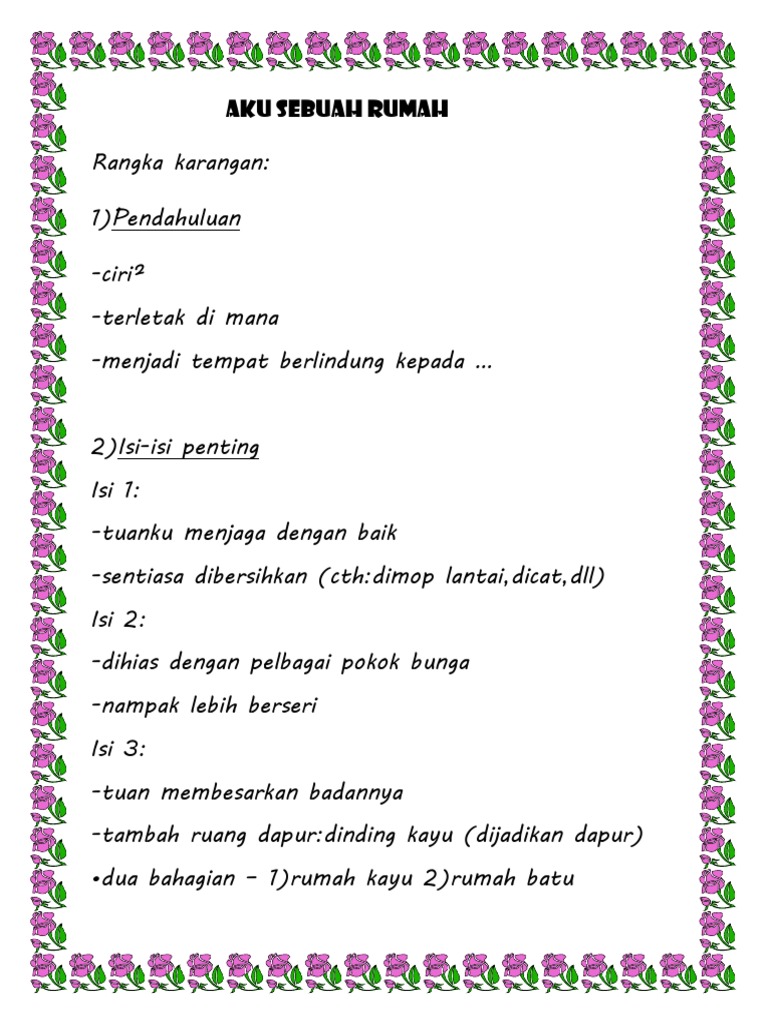 AKU SEBUAH RUMAH
Rangka karangan:
1)Pendahuluan
-ciri²
-terletak di mana
-menjadi tempat berlindung kepada ...
2)Isi-isi penting
Isi 1:
-tuanku menjaga dengan baik
-sentiasa dibersihkan (cth:dimop lantai,dicat,dll)
Isi 2:
-dihias dengan pelbagai pokok bunga
-nampak lebih berseri
Isi 3:
-tuan membesarkan badannya
-tambah ruang dapur:dinding kayu (dijadikan dapur)
•dua bahagian – 1)rumah kayu 2)rumah batu